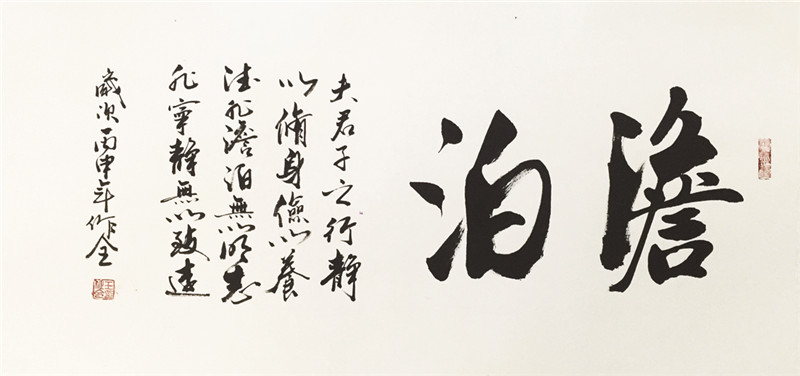 澹泊
夫君子之行静
以脩身儉以養
德非澹泊無以明志
非寧静無以致遠
歲次丙申年作全